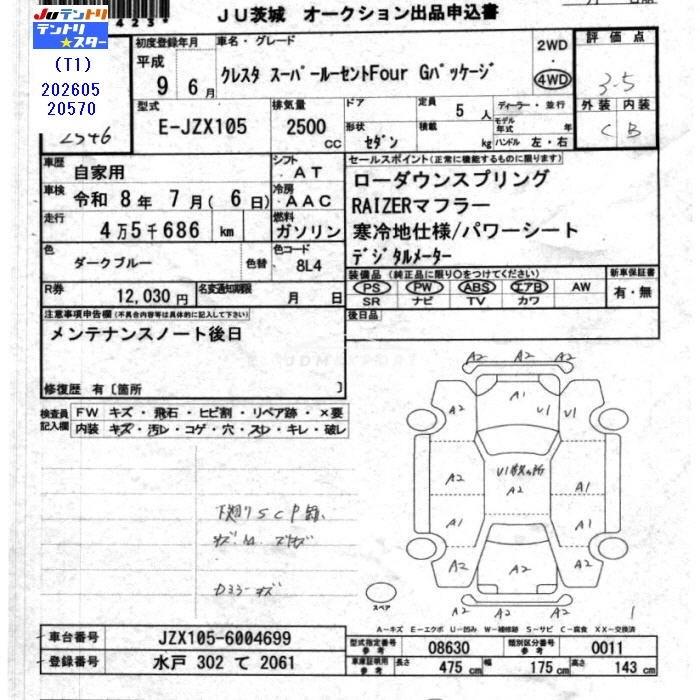 JUテントリ
テントリ★スター
(T1)
202605
20570
JU茨城 オークション出品申込書
初度登録年月
平成
9 6月
車名・グレード
クレスタ スーパールーセントFour Gパッケージ
2WD
・
4WD
評価点
3.5
外装 内装
C B
型式
E-JZX105
排気量
2500 cc
ドア
形状
セダン
定員
5人
積載
kg
ディーラー・並行
モデル年式 年
ハンドル 左・右
2546
車歴
自家用
シフト
AT
車検
令和 8年 7月 ( 6日)
冷房
AAC
走行
4万5千686 km
燃料
ガソリン
色
ダークブルー
色替
色コード
8L4
R券
12,030円
名変通知期限
月 日
セールスポイント(正常に機能するものに限ります)
ローダウンスプリング
RAIZERマフラー
寒冷地仕様/パワーシート
デジタルメーター
装備品(純正品に限り○をつけてください)
PS PW ABS エアB AW
SR ナビ TV カワ
新車保証書
有・無
後日品
注意事項申告欄(不具合内容等は具体的に記入して下さい)
メンテナンスノート後日
修復歴 有〔箇所 〕
検査員記入欄
FW キズ・飛石・ヒビ割・リペア跡・×要
内装 キズ・汚レ・コゲ・穴・スレ・キレ・破レ
A2 A2 A2
A2 A1 U1 U1
A2 A2 A1
A1 A1
A2 A2 A2
A2 A2 A2
1
スペア
A-キズ E-エクボ U-凹み W-補修跡 S-サビ C-腐食 XX-交換済
車台番号
JZX105-6004699
登録番号
水戸 302 て 2061
型式指定番号
参考
08630
類別区分番号
参考
0011
車庫証明用
参考
長さ 475 cm
幅 175 cm
高さ 143 cm